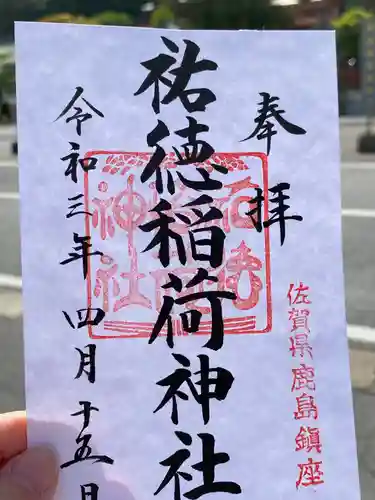 奉拝
祐徳稲荷神社
令和三年四月十五日
佐賀県鹿島鎮座